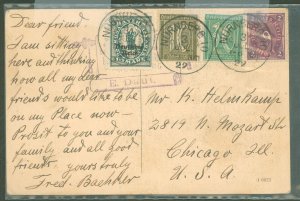 Dear friend.
I am sitting
here and thinking
how all my dear
friends would like to be
on my Place now -
Prosit to you and your
family and all good
friends. yours truly
Fred. Baehker
Mr K. Helmkamp
2819 N. Mozart St
Chicago Ill.
U. S. A.